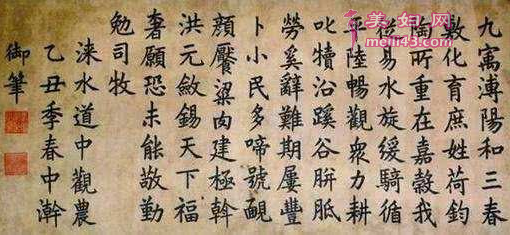 九寓溥陽和三春
敷化育庶姓荷鈞
陶所重在嘉穀我
從易水旋緩騎循
平陸暢觀衆力耕
叱犢沿蹊谷胼胝
勞奚辭難期屢豐
卜小民多啼號靦
顏饜粱肉建極斡
洪元斂錫天下福
奢願恐未能敬勤
勉司牧
淶水道中觀農
乙丑季春中澣
御筆
美妇网